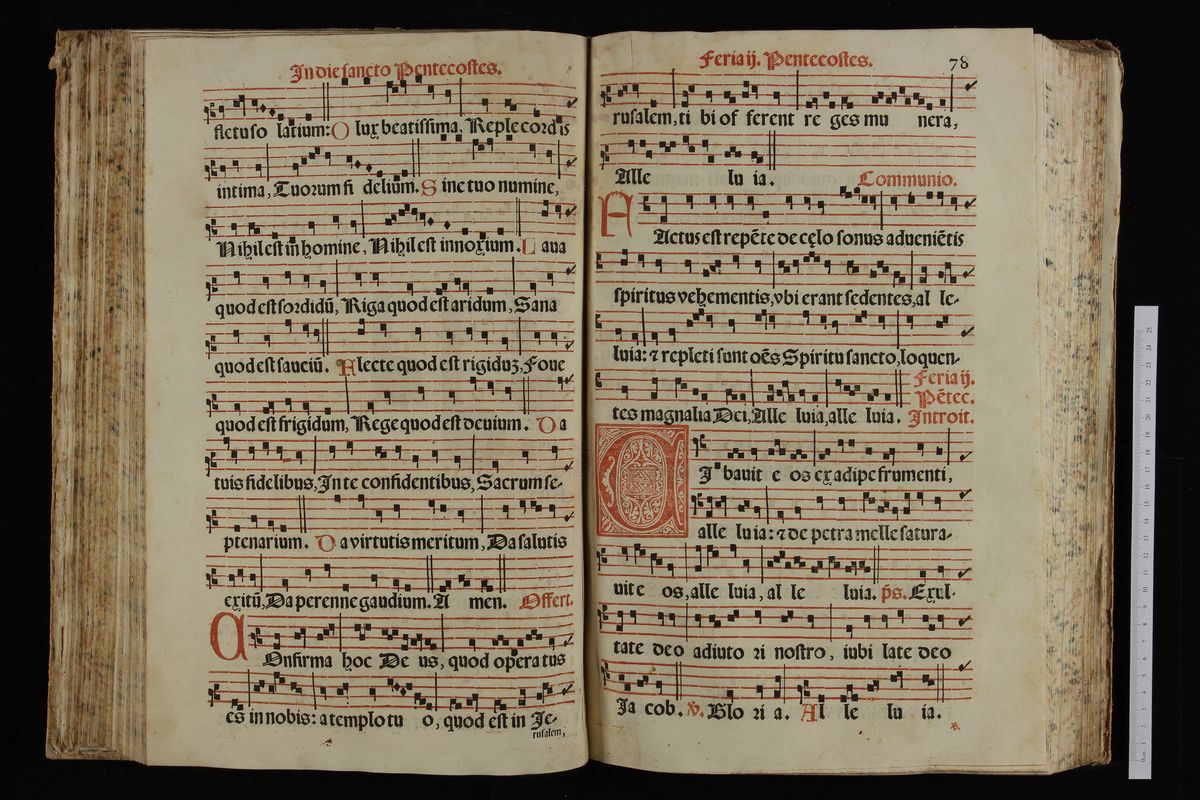 In die sancto Pentecostes.
fletu so latium: O lux beatissima, Reple cordis
intima, Tuorum fi delium. S ine tuo numine,
Nihil est in homine, Nihil est innoxium. L aua
quod est sordidū, Riga quod est aridum, Sana
quod est sauciū. F lecte quod est rigiduʒ, Foue
quod est frigidum, Rege quod est deuium. D a
tuis fidelibus, In te confidentibus, Sacrum se-
ptenarium. D a virtutis meritum, Da salutis
exitū, Da perenne gaudium. A men. Offert.
COnfirma hoc De us, quod opera tus
es in nobis: a templo tu o, quod est in Je-
rusalem,
Feria ij. Pentecostes.
78
rusalem, ti bi of ferent re ges mu nera,
Alle lu ia. Communio.
FActus est repēte de cęlo sonus adueniētis
spiritus vehementis, vbi erant sedentes, al le-
luia: ⁊ repleti sunt oēs Spiritu sancto, loquen-
tes magnalia Dei, Alle luia, alle luia.
Feria ij.
Pētec.
Introit.
CIbauit e os ex adipe frumenti,
alle luia: ⁊ de petra melle satura-
uit e os, alle luia, al le luia. ps. Exul-
tate deo adiuto ri nostro, iubi late deo
Ja cob. ℣. Glo ri a. Al le lu ia.